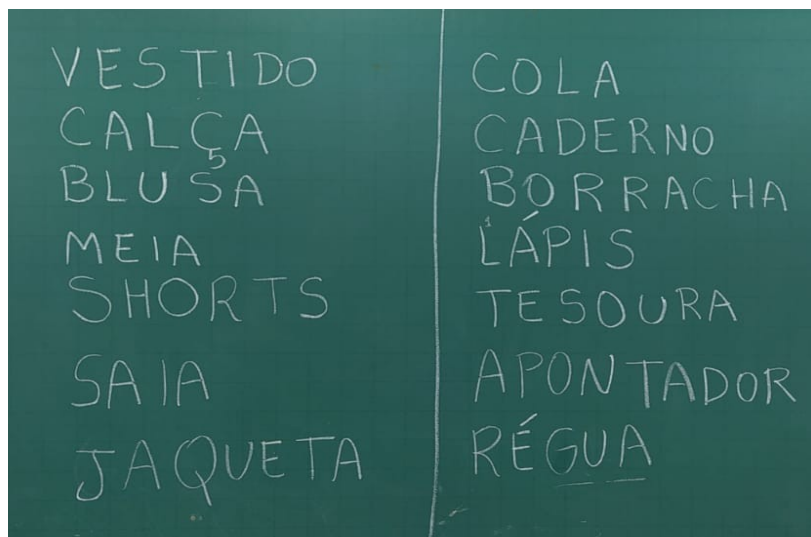 VESTIDO
CALÇA
BLUSA
MEIA
SHORTS
SAIA
JAQUETA
COLA
CADERNO
BORRACHA
LÁPIS
TESOURA
APONTADOR
RÉGUA